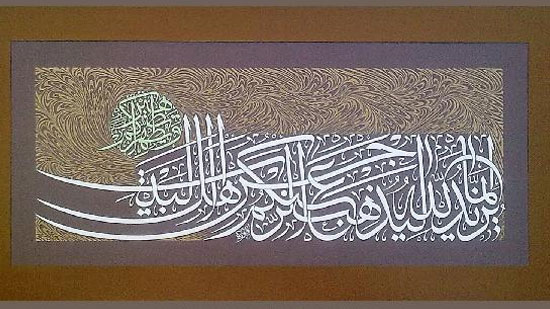 إنما يريد الله ليذهب عنكم الرجس أهل البيت
ويطهركم تطهيرا